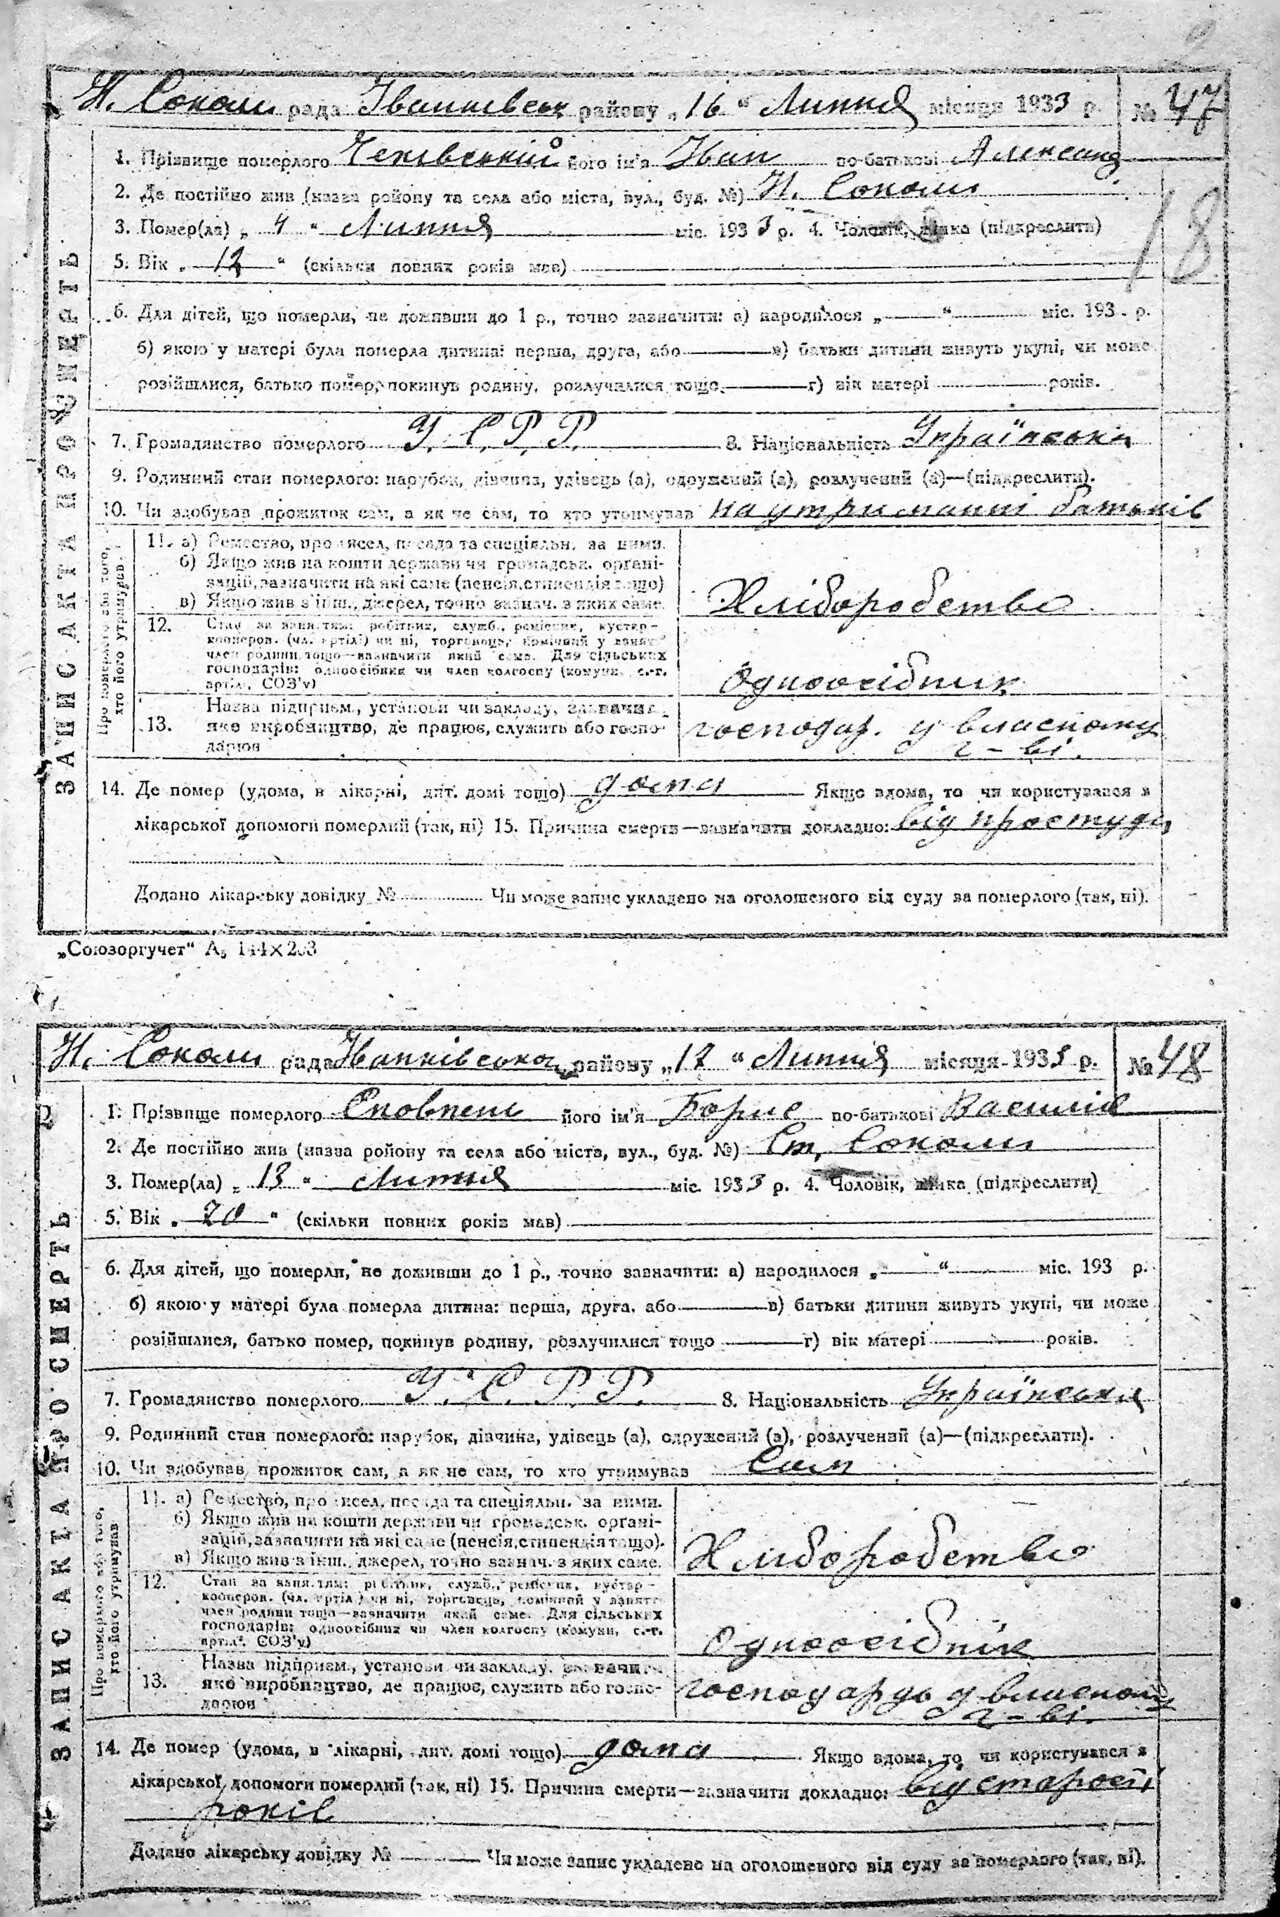 Н. Соколи рада Іванківськ району „16“ Липня місяця 1933 р. № 47
18
ЗАПИС АКТА ПРО СМЕРТЬ
1. Прізвище померлого Чехівський його ім'я Іван по-батькові Александ
2. Де постійно жив (назва району та села або міста, вул., буд. №) Н. Соколи
3. Помер(ла) „4“ Липня міс. 1933 р. 4. Чоловік, жінка (підкреслити)
5. Вік „12“ (скільки повних років мав)
6. Для дітей, що померли, не доживши до 1 р., точно зазначити: а) народилося „ “ міс. 193 р.
б) якою у матері була померла дитина: перша, друга, або в) батьки дитини живуть укупі, чи може
розійшлися, батько помер, покинув родину, розлучилися тощо г) вік матері років.
7. Громадянство померлого У.С.Р.Р. 8. Національність Українська
9. Родинний стан померлого: парубок, дівчина, удівець (а), одружений (а), розлучений (а)—(підкреслити).
10. Чи здобував прожиток сам, а як не сам, то хто утримував на утриманні батьків
Про померлого або того, хто його утримував
11. а) Ремество, промисел, посада та спеціяльн. за ними.
б) Якщо жив на кошти держави чи громадськ. органі-
зацій, зазначити на які саме (пенсія, стипендія тощо)
в) Якщо жив з інш. джерел, точно зазнач. з яких саме. Хліборобство
12. Стан за заняттям: робітник, служб., ремісник, кустар-
кооперов. (чл. артілі) чи ні, торговець, помічний у занятт
член родини тощо—зазначити який саме. Для сільських
господарів: одноосібник чи член колгоспу (комуни, с.-г.
артіл. СОЗ'у) Одноосібник
13. Назва підприєм., установи чи закладу, зазначив
яке виробництво, де працює, служить або госпо-
дарює господар. у власному г-ві.
14. Де помер (удома, в лікарні, дит. домі тощо) дома Якщо вдома, то чи користувався з
лікарської допомоги померлий (так, ні) 15. Причина смерти—зазначити докладно: від простуди
Додано лікарську довідку № Чи може запис укладено на оголошеного від суду за померлого (так, ні).
„Союзоргучет“ А5 144×203
Н. Соколи рада Іванківсько району „17“ Липня місяця 1933 р. № 48
ЗАПИС АКТА ПРО СМЕРТЬ
1. Прізвище померлого його ім'я Борис по-батькові Василів
2. Де постійно жив (назва району та села або міста, вул., буд. №) Ст. Соколи
3. Помер(ла) „13“ Липня міс. 1933 р. 4. Чоловік, жінка (підкреслити)
5. Вік „70“ (скільки повних років мав)
6. Для дітей, що померли, не доживши до 1 р., точно зазначити: а) народилося „ “ міс. 193 р.
б) якою у матері була померла дитина: перша, друга, або в) батьки дитини живуть укупі, чи може
розійшлися, батько помер, покинув родину, розлучилися тощо г) вік матері років.
7. Громадянство померлого У.С.Р.Р. 8. Національність Українська
9. Родинний стан померлого: парубок, дівчина, удівець (а), одружений (а), розлучений (а)—(підкреслити).
10. Чи здобував прожиток сам, а як не сам, то хто утримував Сам
Про померлого або того, хто його утримував
11. а) Ремество, промисел, посада та спеціяльн. за ними.
б) Якщо жив на кошти держави чи громадськ. органі-
зацій, зазначити на які саме (пенсія, стипендія тощо).
в) Якщо жив з інш. джерел, точно зазнач. з яких саме. Хліборобство
12. Стан за заняттям: робітник, служб., ремісник, кустар-
кооперов. (чл. артілі) чи ні, торговець, помічний у занятт
член родини тощо—зазначити який саме. Для сільських
господарів: одноосібник чи член колгоспу (комуни, с.-г.
артіл. СОЗ'у) Одноосібнік
13. Назва підприєм., установи чи закладу, зазначив
яке виробництво, де працює, служить або госпо-
дарює господарь у власном г-ві.
14. Де помер (удома, в лікарні, дит. домі тощо) дома Якщо вдома, то чи користувався з
лікарської допомоги померлий (так, ні) 15. Причина смерти—зазначити докладно: від старості
років
Додано лікарську довідку № Чи може запис укладено на оголошеного від суду за померлого (так, ні).